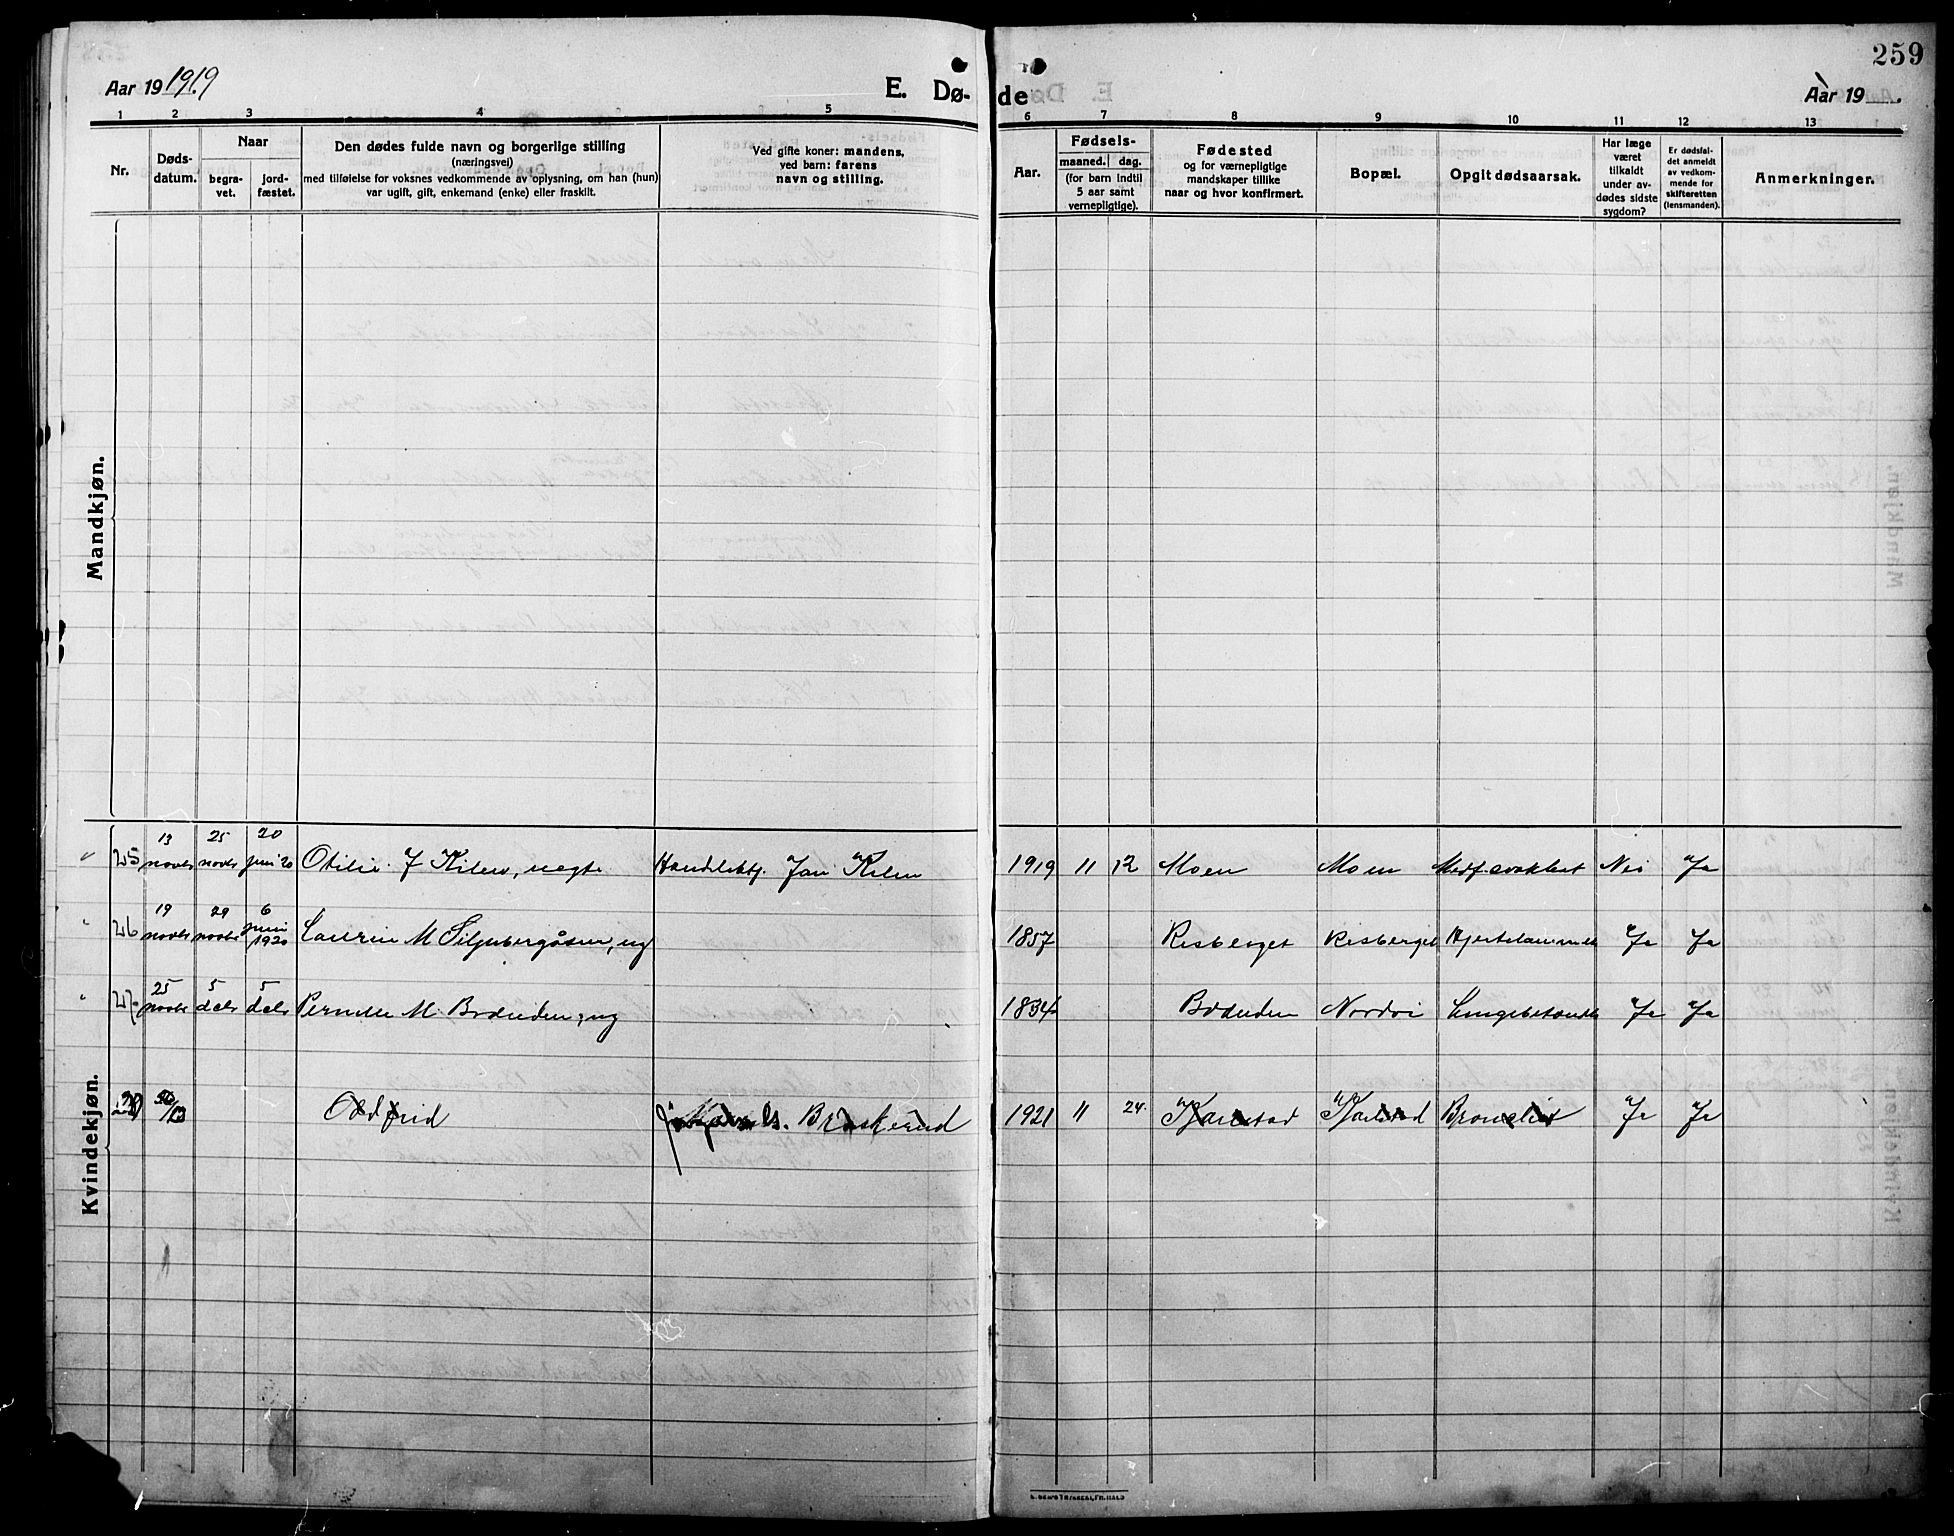 259
Aar 19 1919
E. Dø-
de
Aar 19
1 2 3 4 5 6 7 8 9 10 11 12 13
Nr.
Døds-
datum.
Naar
begra-
vet.
jord-
fæstet.
Den dødes fulde navn og borgerlige stilling
(næringsvei)
med tilføielse for voksnes vedkommende av oplysning, om han (hun)
var ugift, gift, enkemand (enke) eller fraskilt.
Ved gifte koner: mandens,
ved barn: farens
navn og stilling.
Aar.
Fødsels-
maaned. dag.
(for barn indtil
5 aar samt
vernepligtige).
Fødested
og for værnepligtige
mandskaper tillike
naar og hvor konfirmert.
Bopæl.
Opgit dødsaarsak.
Har læge
været
tilkaldt
under av-
dødes sidste
sygdom?
Er dødsfal-
det anmeldt
av vedkom-
mende for
skifteretten
(lensmanden).
Anmerkninger.
Mandkjøn.
Kvindekjøn.
13 25 20
25 novbr novbr juni 20 Otilie J Kilen, Handlsbtj. Kilen 1919 11 12 Moen Moen Medf. svakhet Nei Ja
19 29 6
26 novbr novbr juni 1920 M 1857 Risberget Risberget Ja Ja
25 5 5
27 novbr dcbr dcbr Pernille M. ug 1834 Nordvi Ja Ja
Oddfrid Braskerud 1921 11 24. Kjarstad Kjarstad Ja Ja